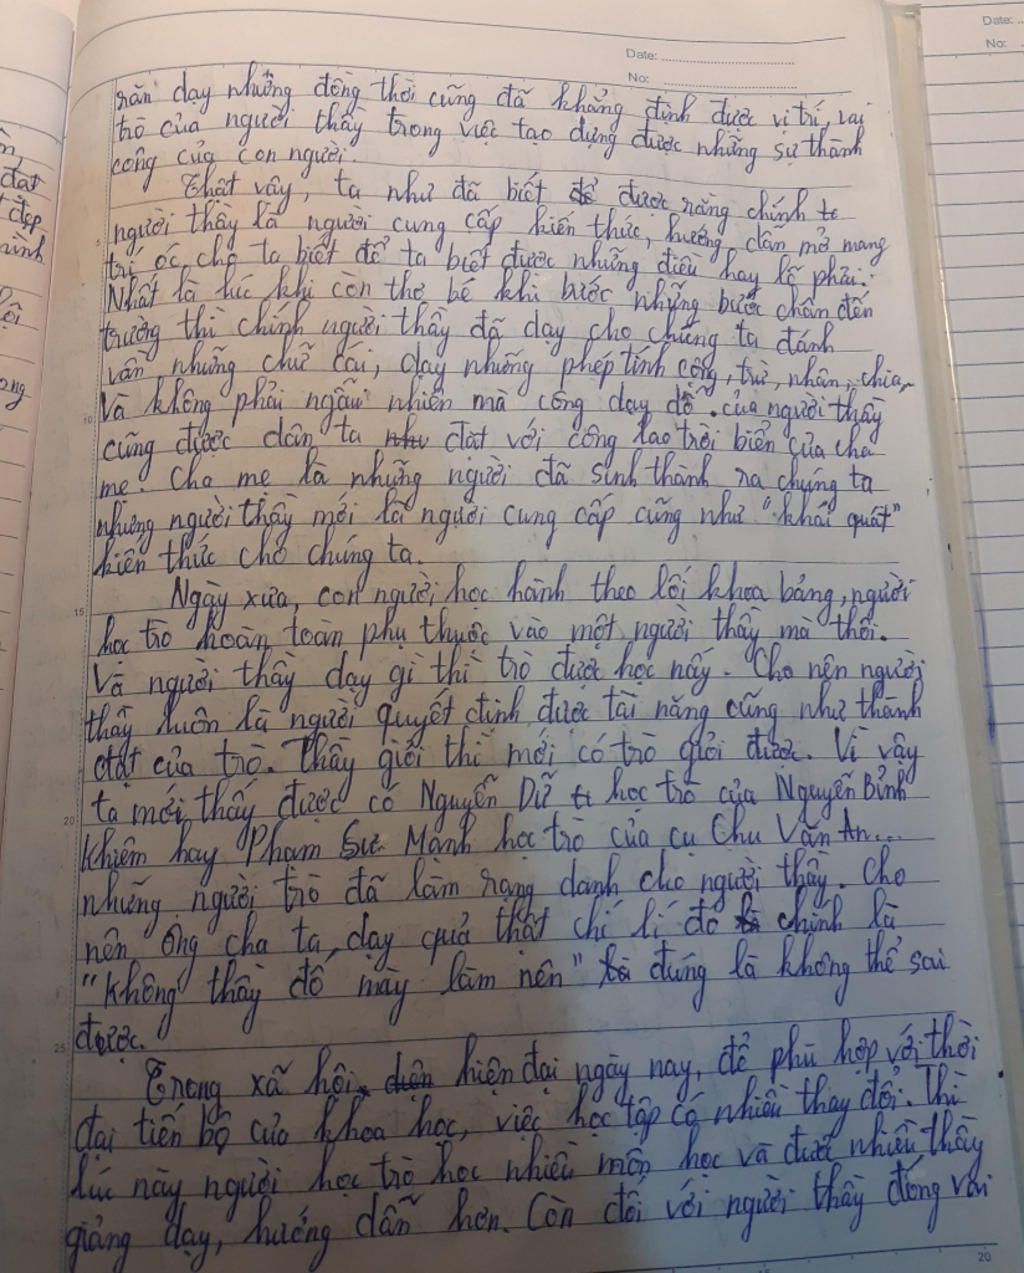 Date:
No:
răn dạy nhưng đồng thời cũng đã khẳng định được vị trí, vai
trò của người thầy trong việc tạo dựng được những sự thành
công của con người.
Thật vậy, ta như đã biết được rằng chính
người thầy là người cung cấp kiến thức, hướng dẫn mở mang
trí óc cho ta biết để ta biết được những điều hay lẽ phải.
Nhất là lúc khi còn thơ bé khi bước những bước chân đến
trường thì chính người thầy đã dạy cho chúng ta đánh
vần những chữ cái, dạy những phép tính cộng, trừ, nhân, chia,
Và không phải ngẫu nhiên mà công dạy dỗ của người thầy
cũng được dân ta đặt với công lao trời biển của cha
mẹ. Cha mẹ là những người đã sinh thành ra chúng ta
nhưng người thầy mới là người cung cấp cũng như "khái quát"
kiến thức cho chúng ta.
Ngày xưa, con người học hành theo lối khoa bảng, người
học trò hoàn toàn phụ thuộc vào một người thầy mà thôi.
Và người thầy dạy gì thì trò được học nấy. Cho nên người
thầy luôn là người quyết định được tài năng cũng như thành
đạt của trò. Thầy giỏi thì mới có trò giỏi được. Vì vậy
ta mới thấy được có Nguyễn Dữ học trò của Nguyễn Bỉnh
Khiêm hay Phạm Sư Mạnh học trò của cụ Chu Văn An...
những người trò đã làm rạng danh cho người thầy. Cho
nên ông cha ta dạy quả thật chí lí đó chính là
"Không thầy đố mày làm nên" đúng là không thể sai
được.
Trong xã hội hiện đại ngày nay, để phù hợp với thời
đại tiến bộ của khoa học, việc học tập có nhiều thay đổi. Thì
lúc này người học trò học nhiều môn học và được nhiều thầy
giảng dạy, hướng dẫn hơn. Còn đối với người thầy đóng vai
5
10
15
20
25
20
Date:
No:
đạt
đẹp
ình
ông